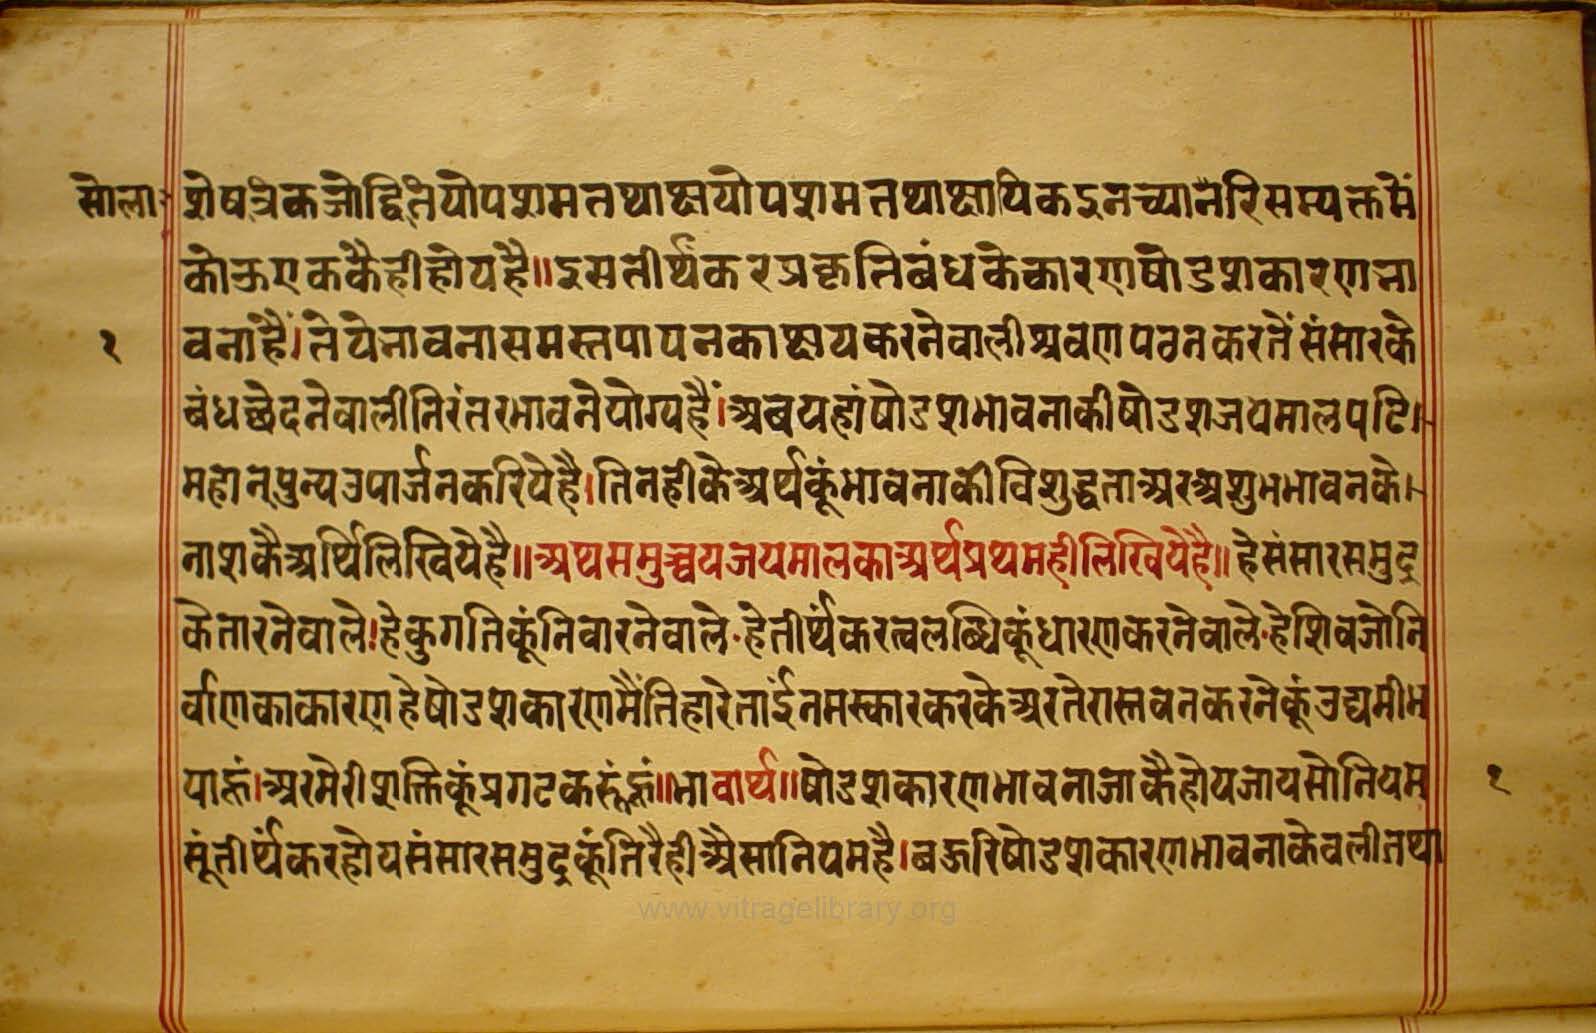 सोला
शेष त्रिक जो द्वितियोपशम तथा क्षायोपशम तथा क्षायिक इन च्यारि सम्यक्तमें
कोऊ एककै ही होय है॥ इस तीर्थंकर प्रकृति बंधके कारण षोडशकारण भा
१
वना हैं। ते ये भावना समस्त पापनका क्षय करनेवाली श्रवण पठन करतें संसारके
बंध छेदनेवाली निरंतर भावने योग्य हैं। अब यहां षोडश भावनाकी षोडश जयमाल पढि।
महान् पुन्य उपार्जन करिये है। तिनहीके अर्थकूं भावनाकी विशुद्धता अर अशुभ भावनके।
नाशकै अर्थि लिखिये है॥ अथ समुच्चय जयमालका अर्थ प्रथमही लिखिये है॥ हे संसार समुद्र
के तारनेवाले! हे कुगतिकूं निवारनेवाले. हे तीर्थंकरत्व लब्धिकूं धारण करनेवाले. हे शिव जो नि
र्वाणका कारण हे षोडशकारण मैं तिहारे तांई नमस्कार करके अर तेरा स्तवन करनेकूं उद्यमी भ
या हूं। अर मेरी शक्तिकूं प्रगट करूं हूं॥ भावार्थ॥ षोडशकारण भावना जाकै होय जाय सो नियम
१
सूं तीर्थंकर होय संसारसमुद्रकूं तिरै ही ऐसा नियम है। बहुरि षोडशकारण भावना केवली तथा
www.vitragelibrary.org